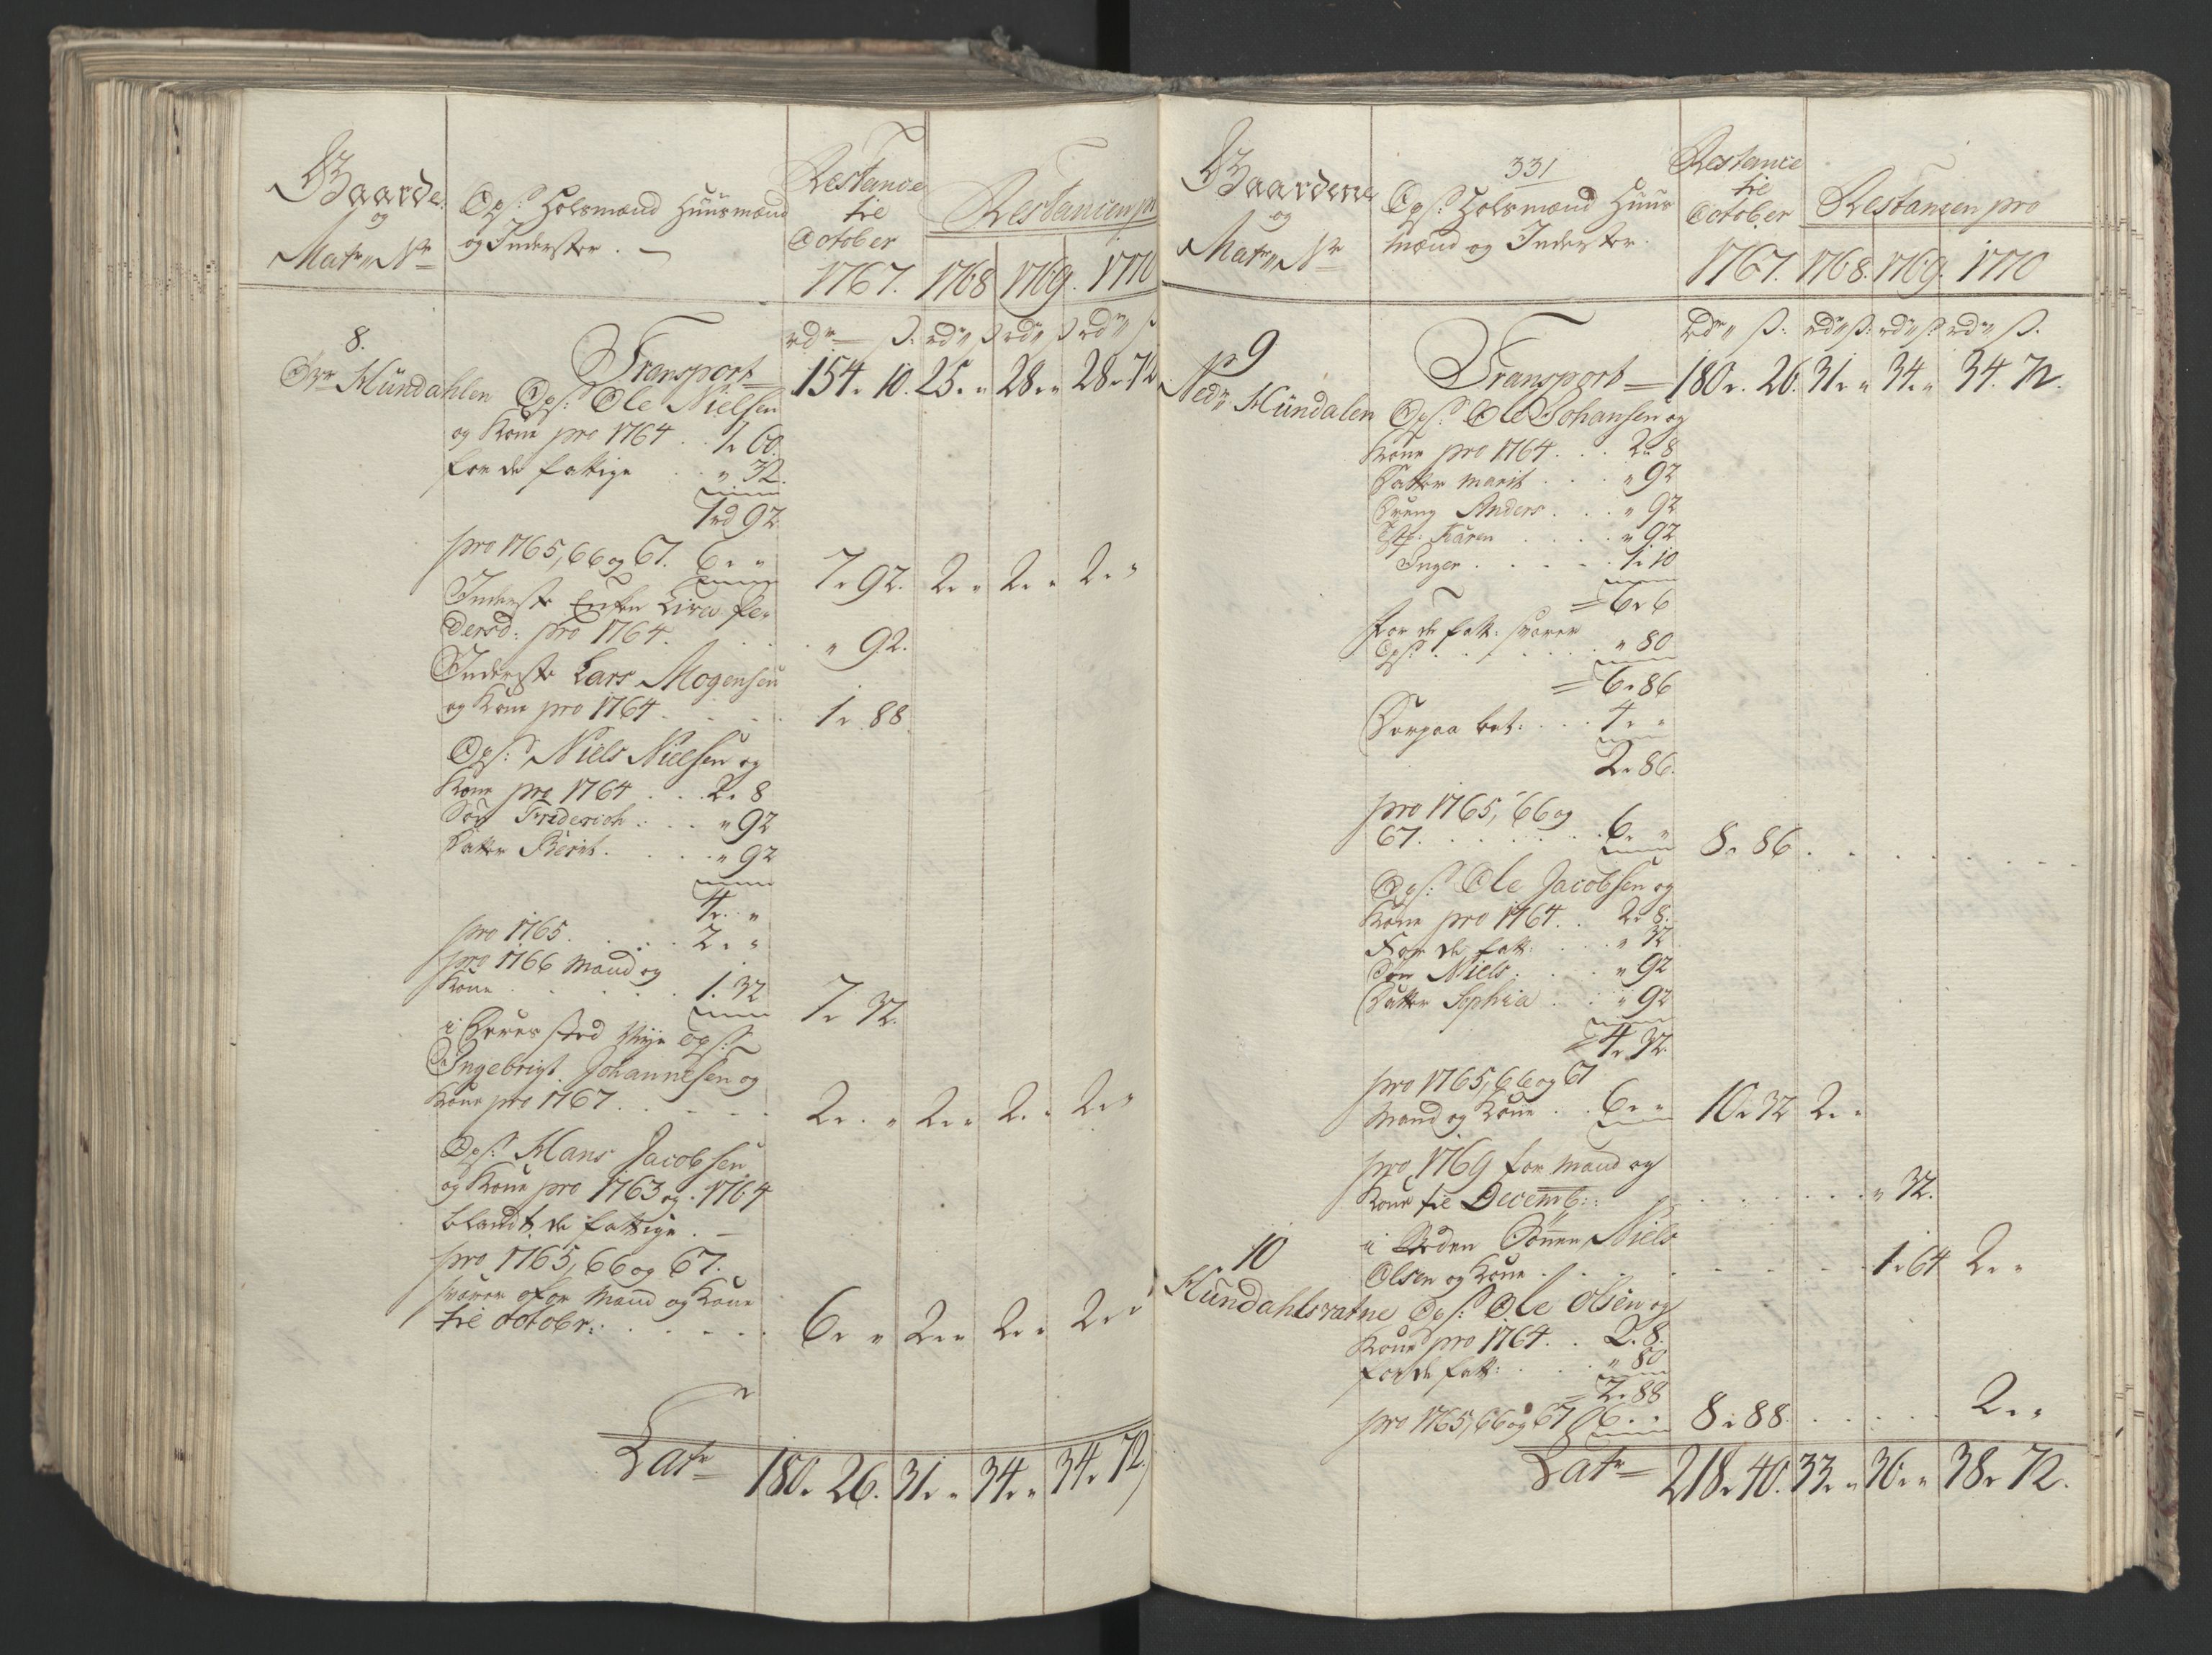 Gaarde
og
Matr: Nr
Ops: Holsmænd Huusmænd
og Inderster. —
Restance
til
October
1767.
Restancen pro
1768 1769. 1770
rdr — ß: rdr ß rdr ß rdr ß
8.
Øvr Hündahlen
Transport 154. 10. 25. " 28. " 28. 72
Ops: Ole Nielsen
og Kone pro 1764 . . 1. 60.
for de fattige . . " 32.
1 rd 92
pro 1765, 66 og 67. 6. " 7. 92. 2. " 2. " 2. "
Inderste Enken Liva Pe-
dersd: pro 1764. . . . " 92.
Inderste Lars Mogensen
og Kone pro 1764. . . . 1. 88
Ops: Niels Nielsen og
Kone pro 1764 . . . 2. 8
Søn Friderich . . . " 92
Datter Berit. . . . " 92
4. "
pro 1765. . . . . 2. "
pro 1766 Mand og
Kone . . . . . . 1. 32 7. 32.
i Deres sted Nye Ops:
Ingebrigt Johannesen og
Kone pro 1767. . . . . 2. " 2. " 2. " 2. "
Ops: Hans Jacobsen
og Kone pro 1763 og 1764
blandt de fattige. —
pro 1765, 66 og 67.
svarer for Mand og Kone
til octobr: . . . . . 6. " 2. " 2. " 2. "
Latr 180. 26. 31. " 34. " 34. 72.
Gaardene
og
Matr: Nr
331
Ops: Holsmænd Huus
mænd og Inderster.
Restance
til
October
1767.
Restancen pro
1768. 1769. 1770
Rdr ß. rdr ß: rdr ß rdr ß.
9
Nedr Hündalen
Transport — 180. 26. 31. " 34. " 34. 72.
Ops: Ole Johansen og
Kone pro 1764. . . 2. 8
Datter Marit . . . " 92
Dreng Anders . . . " 92
Karen . . . . " 92
Inger . . . . . 1. 10
= 6. 6
For de fatt: svarer
Ops: . . . . . . " 80
= 6. 86
Derpaa bet: . . . 4. "
2. 86.
pro 1765, 66 og
67. . . . . . . 6. " 8. 86 . . . . . . .
Ops: Ole Jacobsen og
Kone pro 1764. . 2. 8.
For de fatt: . . . " 32
Søn Niels: . . . " 92
Datter Sophia . . " 92
= 4. 32.
pro 1765, 66 og 67
Mand og Kone . . 6. " 10. 32 2. "
pro 1769 for Mand og
Kone til Decemb: . . . . . . . . " 32.
10
i Steden Sönnen Niels
Olsen og Kone . . . . . . . . . 1. 64 2. "
Hündahlsvatne Ops: Ole Olsen og
Kone pro 1764. . 2. 8.
for de fatt: . . . " 80
= 2. 88
pro 1765, 66 og 67 6. . 8. 88 . . . . . . 2. "
Latr — 218. 40. 33. " 36. " 38. 72.